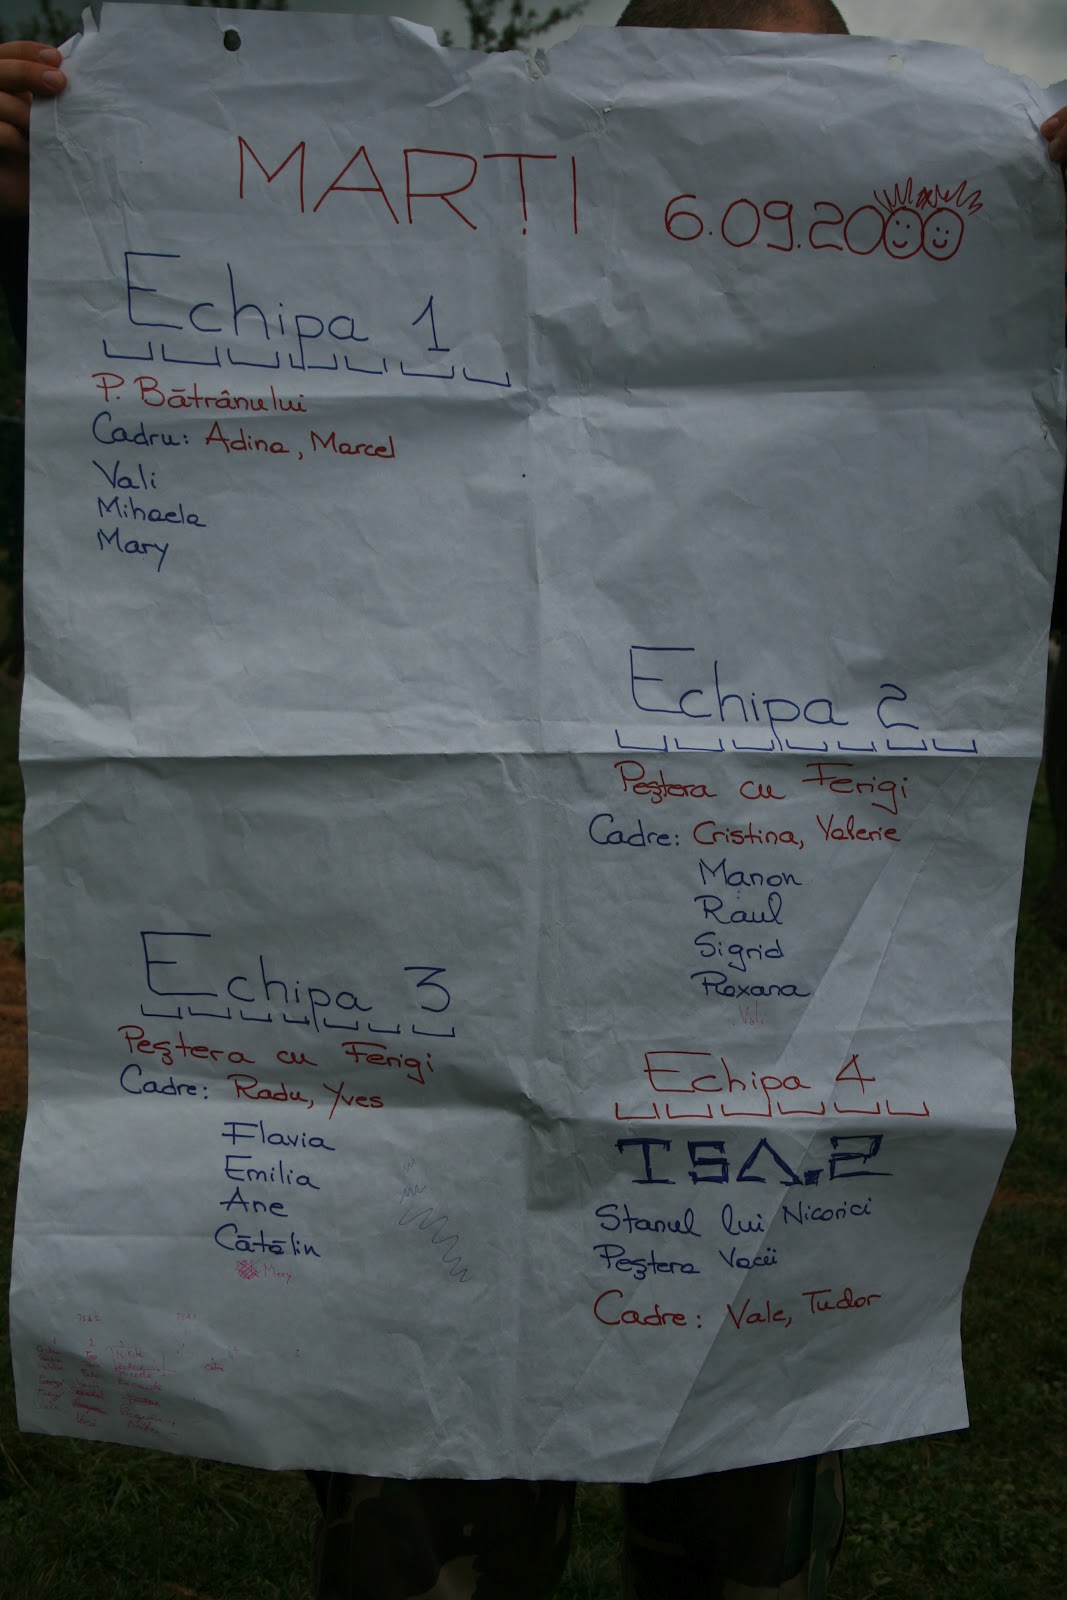 MARȚI
6.09.2000
Echipa 1
P. Bătrânului
Cadru: Adina, Marcel
Vali
Mihaela
Mary
Echipa 2
Peștera cu Ferigi
Cadre: Cristina, Valerie
Manon
Raul
Sigrid
Roxana
Vali
Echipa 3
Peștera cu Ferigi
Cadre: Radu, Yves
Flavia
Emilia
Ane
Cătălin
Mery
Echipa 4
TSA.2
Stanul lui Nicorici
Peștera Vacii
Cadre: Vale, Tudor
TSA 2 TSA 1
1 2 3